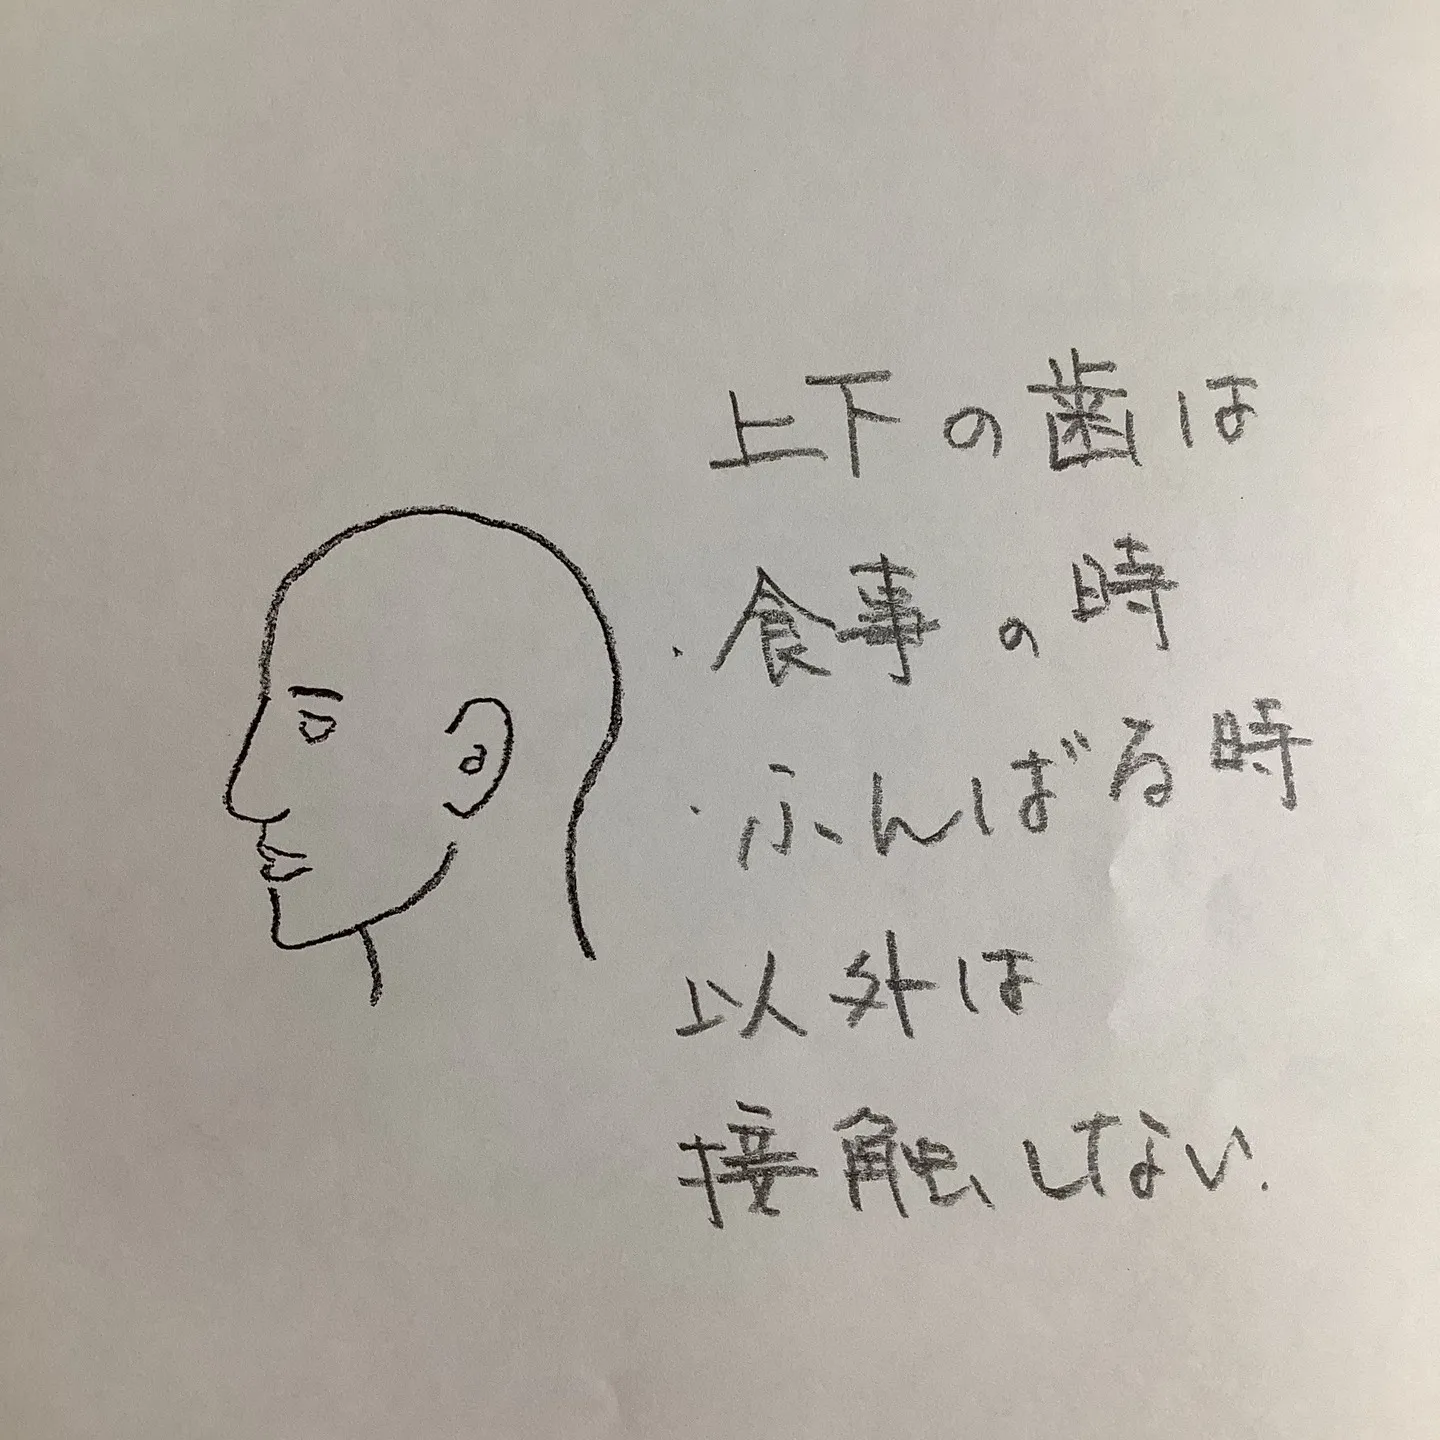 上下の歯は
・食事の時
・ふんばる時
以外は
接触しない.